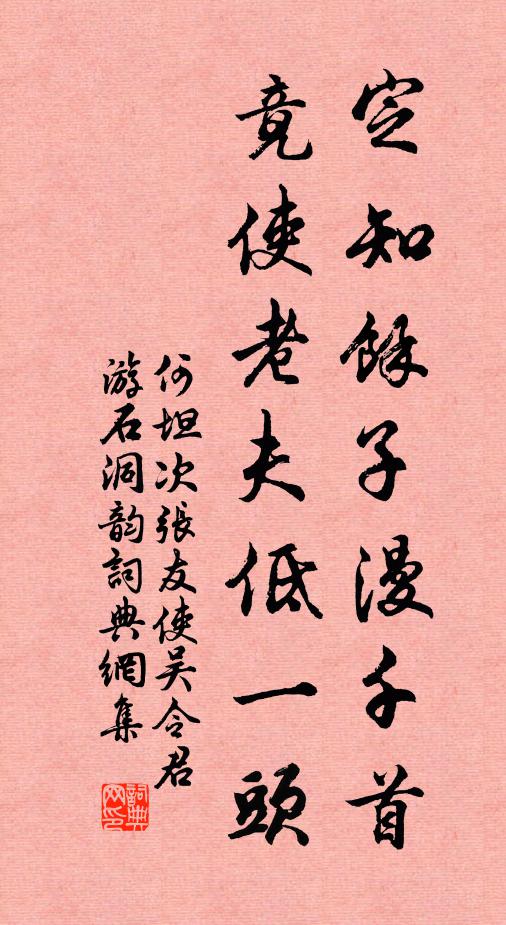 定知餘子漫千首
竟使老夫低一頭
何坦次張友使吴令君
游石洞韵詞典網集
詞典網印